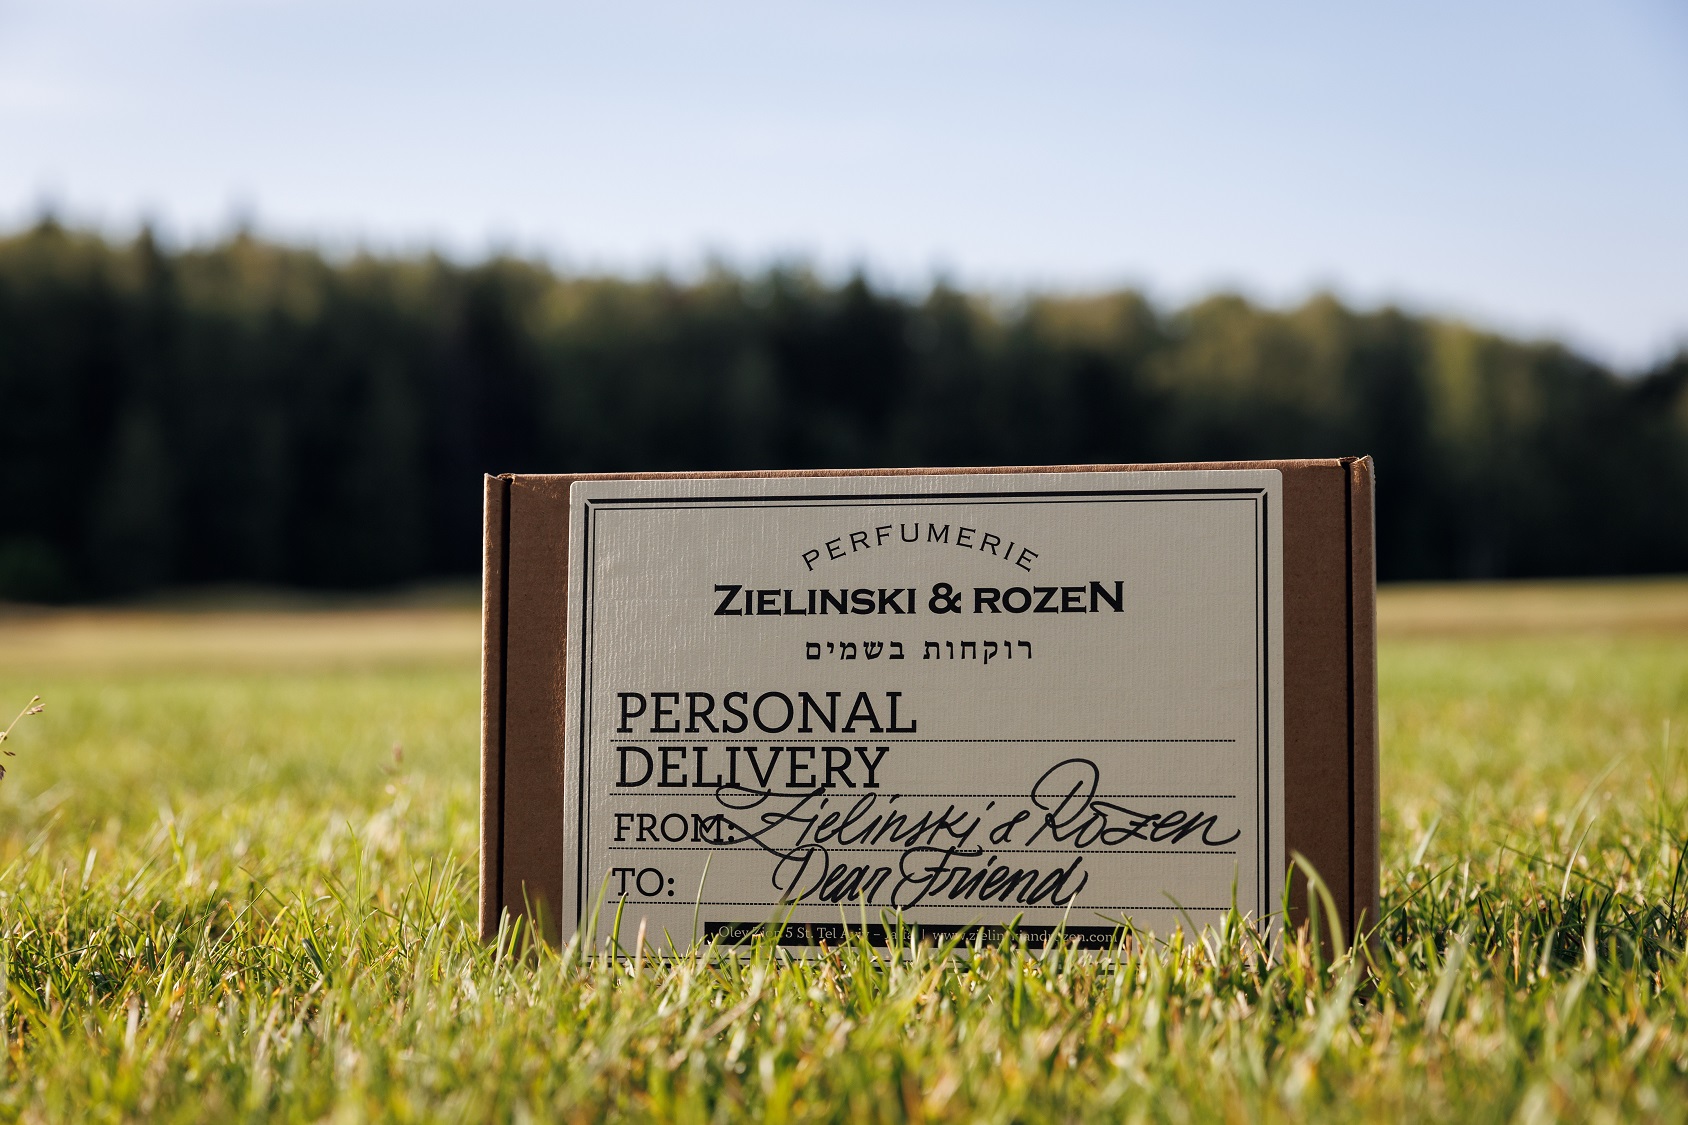 PERFUMERIE
ZIELINSKI & ROZEN
רוקחות בשמים
PERSONAL
DELIVERY
FROM: Zielinski & Rozen
TO: Dear Friend
Oley Zion 5 St. Tel Aviv – Jaffa | www.zielinskiandrozen.com